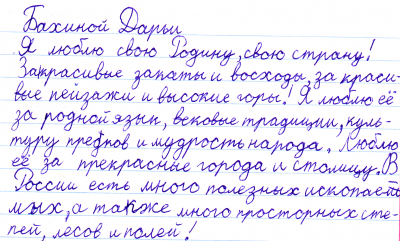 Бахиной Дарьи
Я люблю свою Родину, свою страну!
За красивые запаты и восходы, за краси-
вые пейзажи и высокие горы! Я люблю её
за родной язык, вековые традиции, куль-
туру предков и мудрость народа. Люблю
её за прекрасные города и столицу. В
России есть много полезных ископает
мых, а также много просторных сте-
пей, лесов и полей!